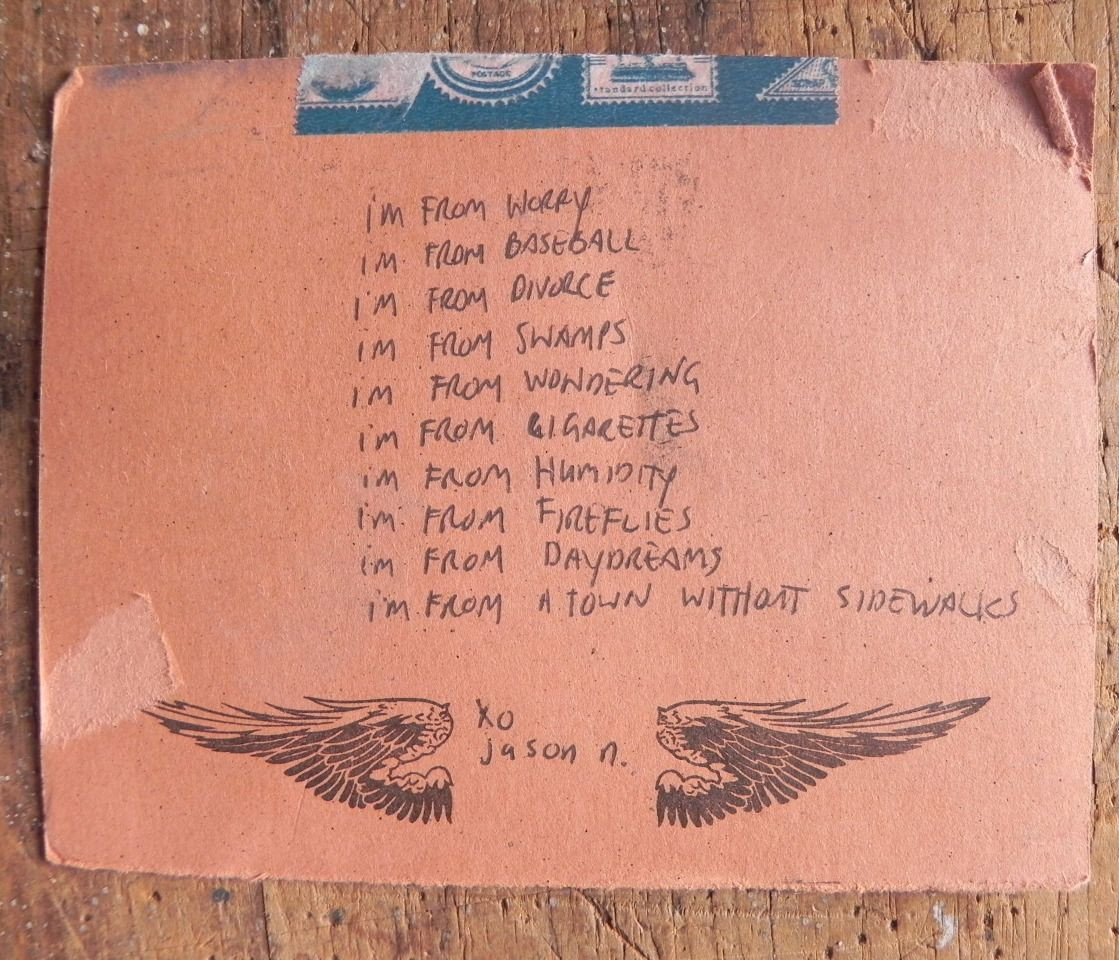 POSTAGE
standard collection
i'm FROM WORRY
i'm FROM BASEBALL
i'm FROM DIVORCE
i'm FROM SWAMPS
i'm FROM WONDERING
i'm FROM CIGARETTES
i'm FROM HUMIDITY
i'm FROM FIREFLIES
i'm FROM DAYDREAMS
i'm FROM A TOWN WITHOUT SIDEWALKS
xo
jason n.